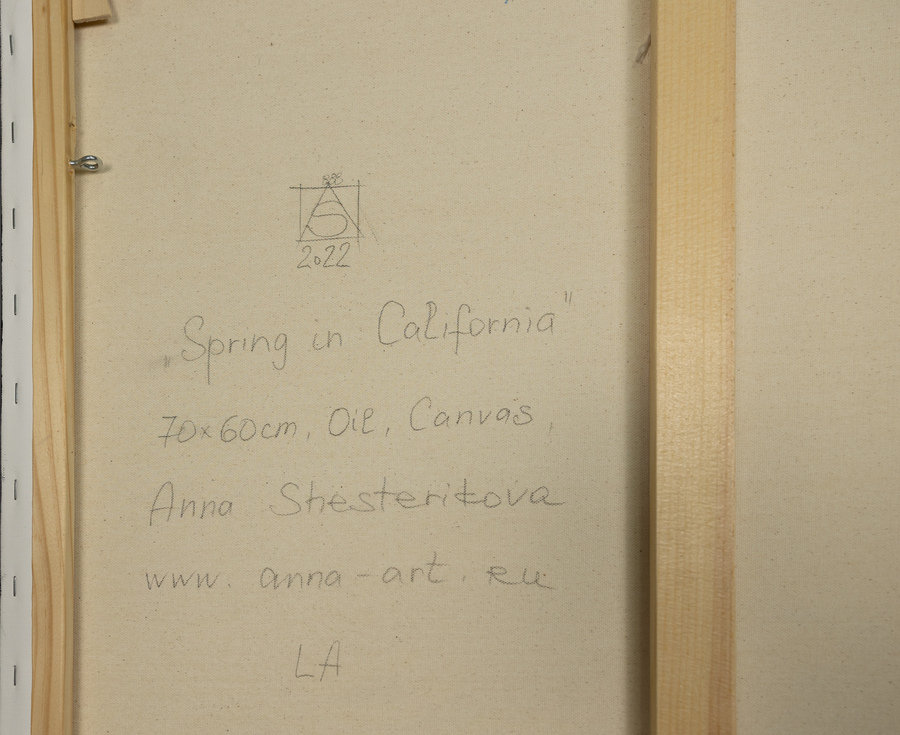 888
AS
2022
„Spring in California"
70x60cm, Oil, Canvas,
Anna Shesterikova
www. anna-art. ru
LA